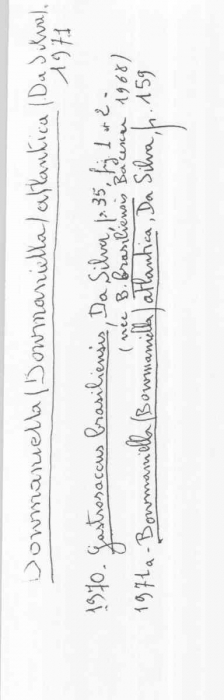 Bowmaniella (Bowmaniella) atlantica (Da Silva),
1971
1970. Gastrosaccus brasiliensis, Da Silva, p. 35, fig 1 et 2 -
(nec B. brasiliensis Bacescu 1968)
1971a - Bowmaniella (Bowmaniella) atlantica, Da Silva, p. 159